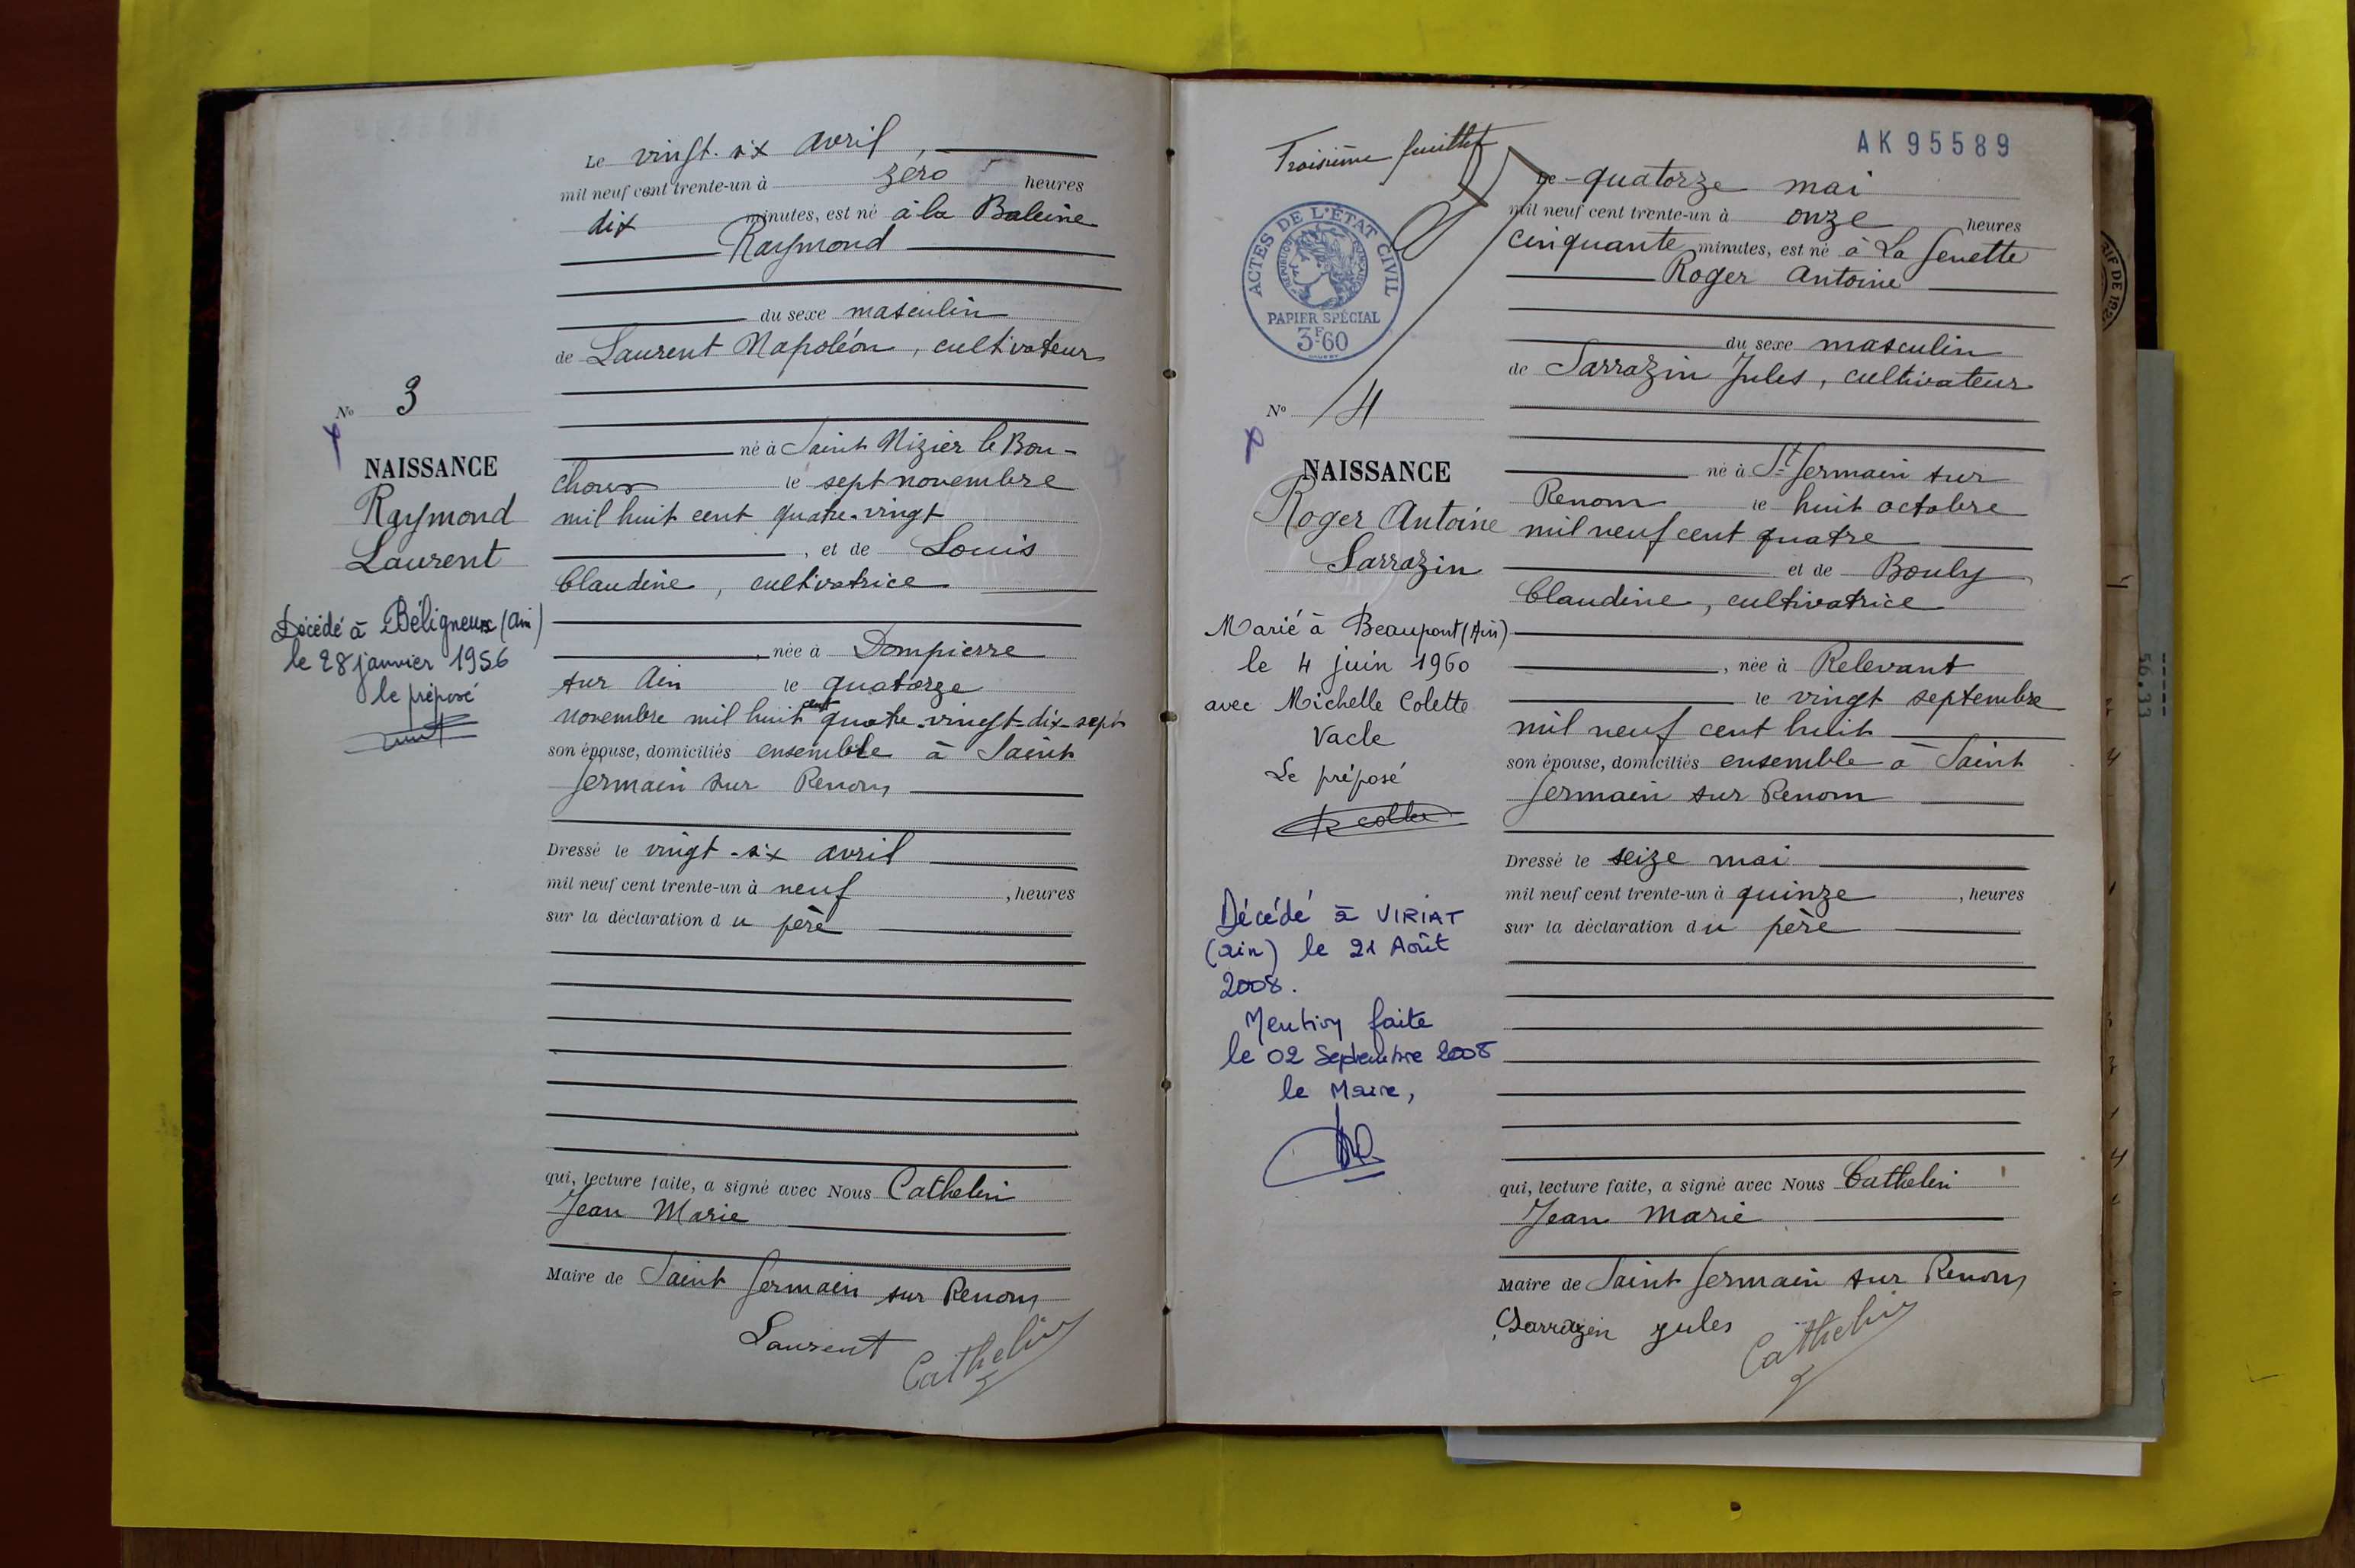 Le vingt-six avril,
mil neuf cent trente-un à zéro heures
dix minutes, est né à la Baleine
Raymond
du sexe masculin
de Laurent Napoléon, cultivateur
né à Saint Nizier le Bou-
choux le sept novembre
mil huit cent quatre-vingt
, et de Louis
Claudine, cultivatrice
, née à Dompierre
sur Ain le quatorze
novembre mil huit cent quatre-vingt-dix-sept
son épouse, domiciliés ensemble à Saint
Germain sur Renom
Dressé le vingt-six avril
mil neuf cent trente-un à neuf, heures
sur la déclaration du père
qui, lecture faite, a signé avec Nous Cathelin
Jean Marie
Maire de Saint Germain sur Renom
Laurent Cathelin
No 3
NAISSANCE
Raymond
Laurent
Décédé à Béligneux (Ain)
le 28 janvier 1956
le préposé
Troisième feuillet
AK 95589
ACTES DE L'ÉTAT CIVIL
RÉPUBLIQUE FRANÇAISE
PAPIER SPÉCIAL
3F60
No 4
NAISSANCE
Roger Antoine
Sarrazin
Marié à Beaupont (Ain)
le 4 juin 1960
avec Michelle Colette
Vacle
Le préposé
Décédé à VIRIAT
(Ain) le 21 Août
2008.
Mention faite
le 02 Septembre 2008
le Maire,
Le quatorze mai
mil neuf cent trente-un à onze heures
cinquante minutes, est né à La Genette
Roger Antoine
du sexe masculin
de Sarrazin Jules, cultivateur
né à St Germain sur
Renom le huit octobre
mil neuf cent quatre
et de Bouly
Claudine, cultivatrice
, née à Relevant
le vingt septembre
mil neuf cent huit
son épouse, domiciliés ensemble à Saint
Germain sur Renom
Dressé le seize mai
mil neuf cent trente-un à quinze, heures
sur la déclaration du père
qui, lecture faite, a signé avec Nous Cathelin
Jean Marie
Maire de Saint Germain sur Renom
Sarrazin jules Cathelin